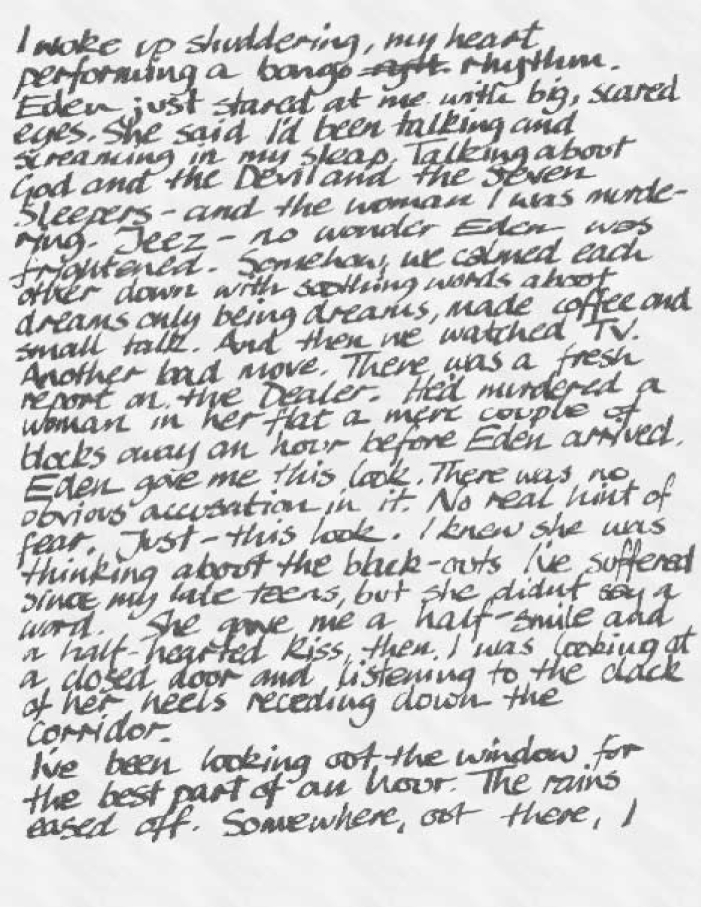 I woke up shuddering, my heart
performing a bongo rhythm.
Eden just stared at me with big, scared
eyes. She said I'd been talking and
screaming in my sleep. Talking about
God and the Devil and the Seven
Sleepers - and the woman I was murde-
ring. Jeez - no wonder Eden was
frightened. Somehow, we calmed each
other down with soothing words about
dreams only being dreams, made coffee and
small talk. And then we watched TV.
Another bad move. There was a fresh
report on the Dealer. He'd murdered a
woman in her flat a mere couple of
blocks away an hour before Eden arrived.
Eden gave me this look. There was no
obvious accusation in it. No real hint of
fear. Just - this look. I knew she was
thinking about the black-outs I've suffered
since my late teens, but she didn't say a
word. She gave me a half-smile and
a half-hearted kiss, then I was looking at
a closed door and listening to the clack
of her heels receding down the
corridor.
I've been looking out the window for
the best part of an hour. The rains
eased off. Somewhere, out there, I